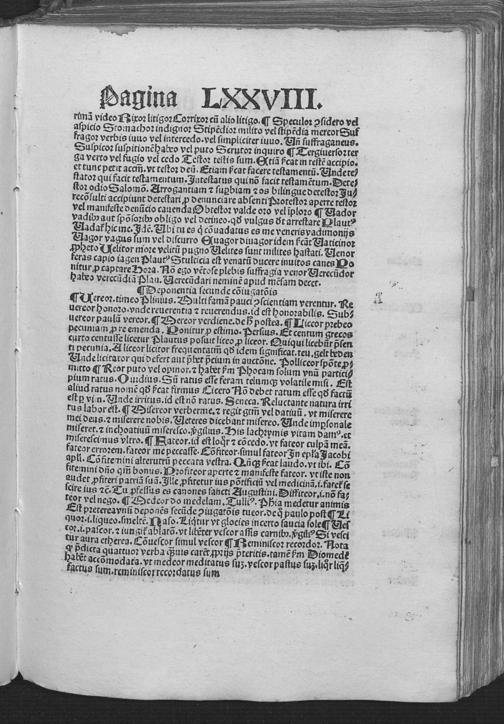 Pagina LXXVIII.
rimā video Nixor litigor Corrixor cū alio litigo. ¶ Speculor ꝯsidero vel
aspicio Stomachor indignor Stipēdior milito vel stipēdia mercor Suf
fragor verbis iuuo vel intercedo. vel simpliciter iuuo. Uñ suffraganeus.
Suspicor suspitionē habeo vel puto Scrutor inquiro ¶ Tergiuersor ter
ga verto vel fugio vel cedo Testor testis sum. Etiā ſcat in testē accipio.
et tunc petit accm̄. vt testor deū. Etiam ſcat facere testamentū. Unde te
stator qui facit testamentum. Intestatus qui nō facit testamētum. Dete
stor odio Salomō. Arrogantiam ⁊ supbiam ⁊ os bilingue detestor Iu
recōsulti accipiunt detestari ꝓ denunciare absenti Protestor aperte testor
vel manifeste denūcio cauenda Obtestor valde oro vel iploro ¶ Uador
vadib̄ aut spōsorib̄ obligo vel detineo. qđ vulgus đt arrestare Plautꝰ
Uadat̄ hic me. Idē. Ubi tu es q̄ cōuadatus es me veneris vadimonijs
Uagor vagus sum vel discurro Euagor diuagor idem ſcāt Uaticinor
ꝓpheto Uelitor more velitū pugno Uelites sunt milites hastati. Uenor
feras capio iagen Plautꝰ Stulticia est venatū ducere inuitos canes Po
nitur ꝓ captare Hora. Nō ego vētose plebis suffragia venor Uerecūdor
habeo verecūdiā Plau. Uerecūdari neminē apud mēsam decet.
¶ Deponentia secunde cōiugatōis
¶ Uereor. timeo Plinius. Multi famā pauci ꝯscientiam verentur. Re
uereor honoro. vnde reuerentia ⁊ reuerendus. id est honorabilis. Sub
uereor paulū vereor. ¶ Mereor verdiene. de h̄ postea. ¶ Liceor precio
pecuniam ꝓ re emenda. Ponitur ꝓ estimo. Persius. Et centum grecos
curto centusse licetur Plautus posuit liceo ꝓ liceor. Quiqui licebūt ꝓsen
ti pecunia. A liceor licitor frequentatm̄ qđ idem significat. teu. gelt bieden
Unde licitator qui defert aut p̄bet p̄cium in auctōne. Polliceor spōte ꝓ
mitto ¶ Reor puto vel opinor. ⁊ habet fm̄ Phocam solum vnū partici
pium ratus. Ouidius. Sū ratus esse feram telumqꝫ volatile misi. Est
aliud ratus nomē qđ ſcat firmus Cicero Nō debet ratum esse qđ factū
est ꝑ vi a. Unde irritus. id est nō ratus. Seneca. Reluctante natura irri
tus labor est. ¶ Misereor verberme. ⁊ regit gtm̄ vel datiuū. vt miserere
mei deus. ⁊ miserere nobis. Ueteres dicebant misereo. Unde impsonale
miseret. ⁊ inchoatiuū miseresco. Ꝟgilius. His lachrymis vitam damꝰ. et
miserescimus vltro. ¶ Fateor. id est loqr̄ ⁊ cōcedo. vt fateor culpā meā.
Fateor errorem. fateor me peccasse. Cōfiteor. simul fateor In epl̄a Jacobi
apl̄i. Cōfitemini alterutrū peccata vestra. Qn̄qꝫ ſcat laudo. vt ibi. Cō
fitemini dn̄o qm̄ bonus. Profiteor aperte ⁊ manifeste fateor. vt iste non
audet ꝓfiteri patriā suā. Ille ꝓfitetur ius pōtificiū vel medicinā. i. facet̄ se
scire ius ⁊c̄. Tu ꝓfessus es canones sancti Augustini. Diffiteor. i. nō fa
teor vel nego. ¶ Medeor do medelam. Tulliꝰ. Phīa medetur animis
Est preterea vnū deponēs secūde ⁊ iugatōis tueor. de q̄ paulo post ¶ Li
quor. i. liqueo. smeltē. Naso. Liq̄tur vt glacies incerto saucia sole ¶ Ue
scor. i. pascor. ⁊ iungit̄ ablatō. vt libēter vescor assis carnib̄. Ꝟgiliꝰ Si vesci
tur aura etherea. Cōuescor simul vescor ¶ Reminiscor recordor. Nota
ꝙ p̄dicta quattuor verba q̄nius carēt ꝓprijs p̄teritis. tamē fm̄ Diomedē
habēt accōmodata. vt medeor meditatus suꝫ. vescor pastus suꝫ. liq̄r liq̄
factus sum. reminiscor recordatus sum